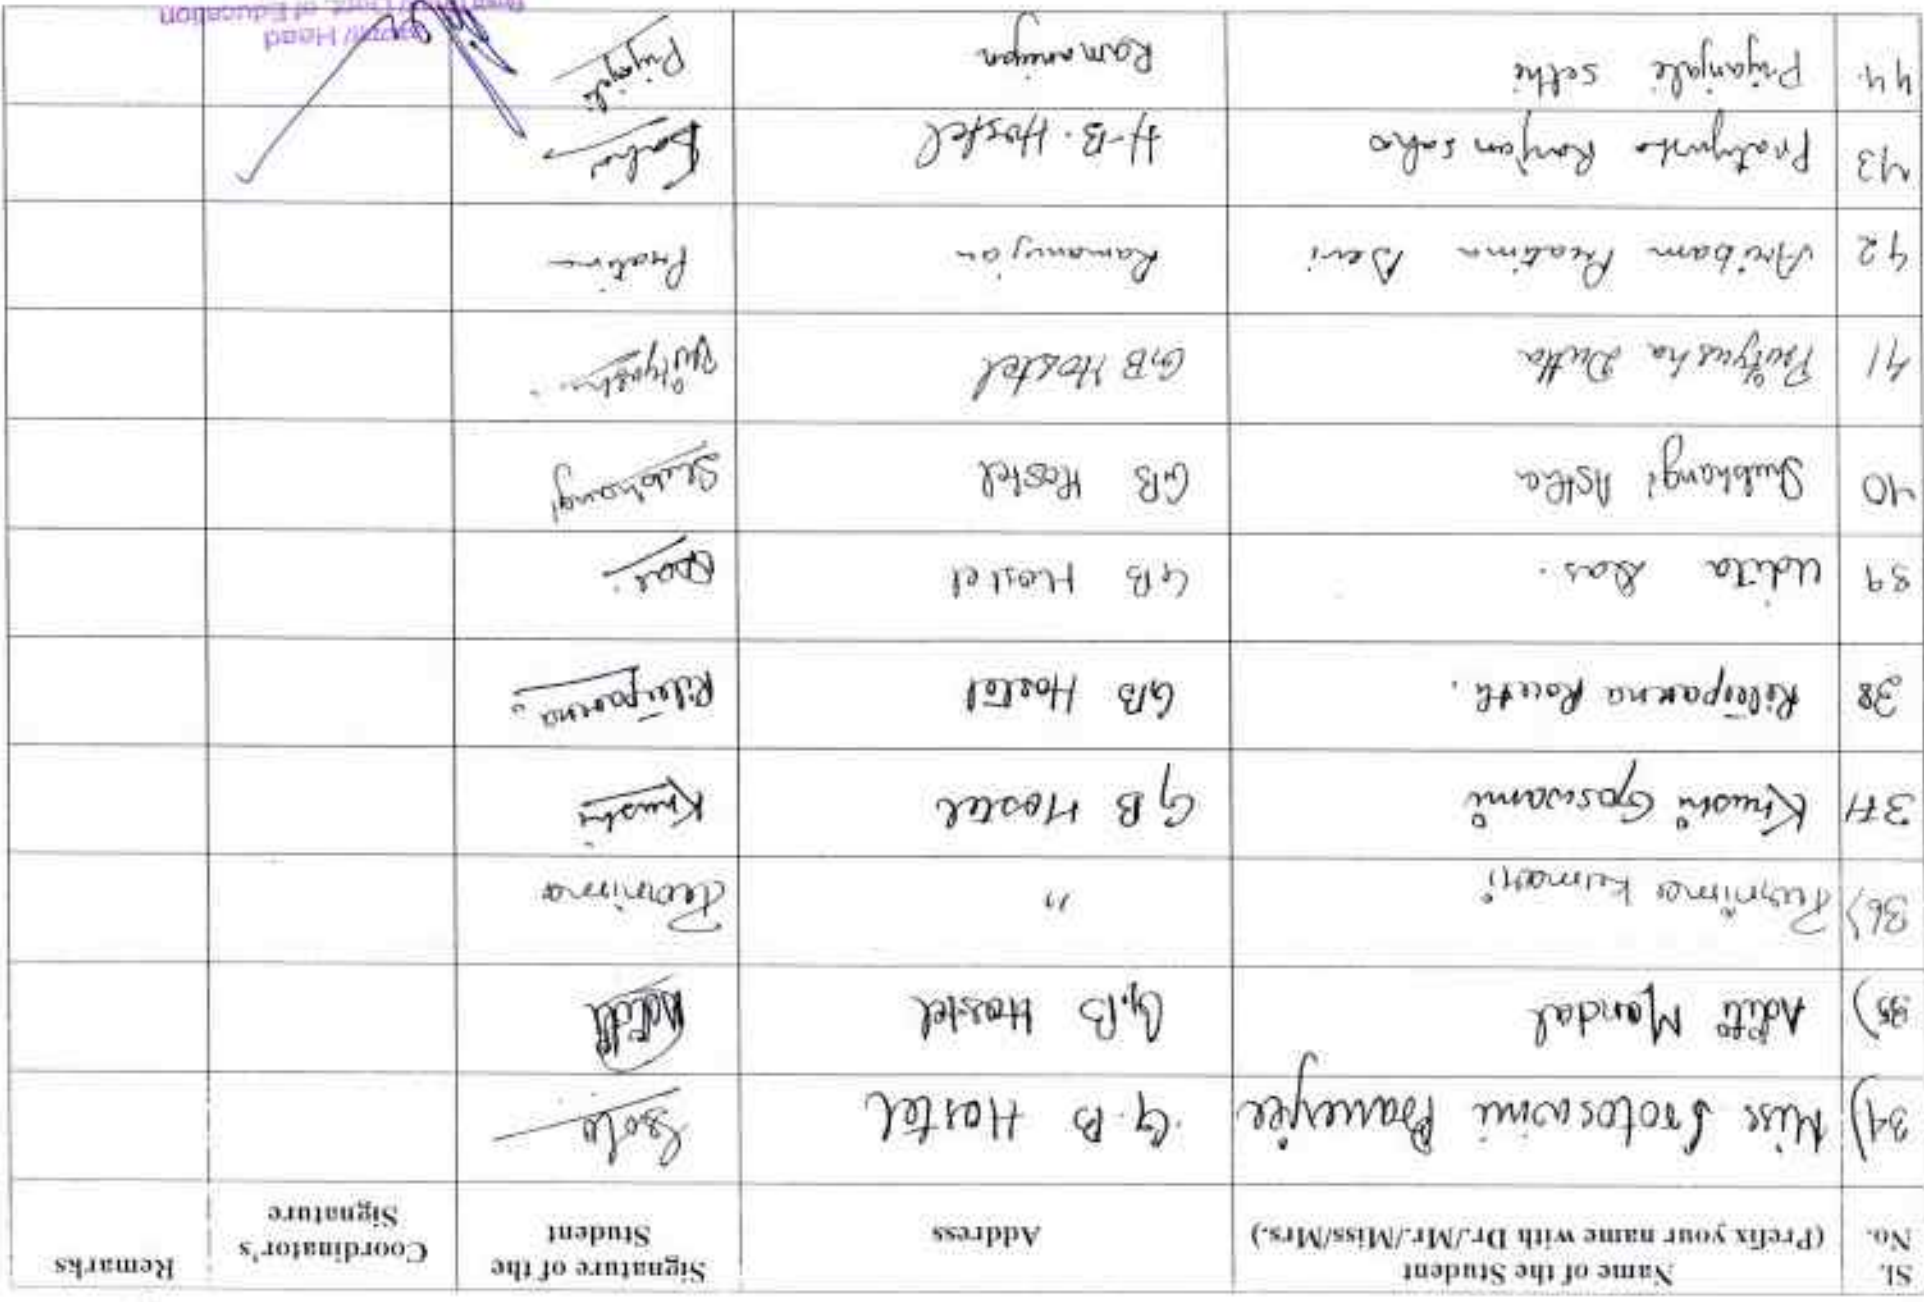 Sl. No. Name of the Student (Prefix your name with Dr./Mr./Miss/Mrs.) Address Signature of the Student Coordinator's Signature Remarks
34) Miss Srotoswini Banerjee G.B Hostel Sroto
35) Aditi Mandal G.B Hostel Aditi
36) Purnima kumari " Purnima
37 Khushi Goswami G B Hostel Khushi
38 Rituparna Routh. GB Hostel Rituparna
39 Udita Das. GB Hostel
40 Shubhangi Astha GB Hostel Shubhangi
41 Pratyusha Dutta GB Hostel Pratyusha
42 Aribam Pratima Devi Ramanujan Pratima
43 Pratyusha Ranjan Sahoo H-B. Hostel Sahoo
44. Priyanjali sethi Ramanujan
Head
Dept. of Education